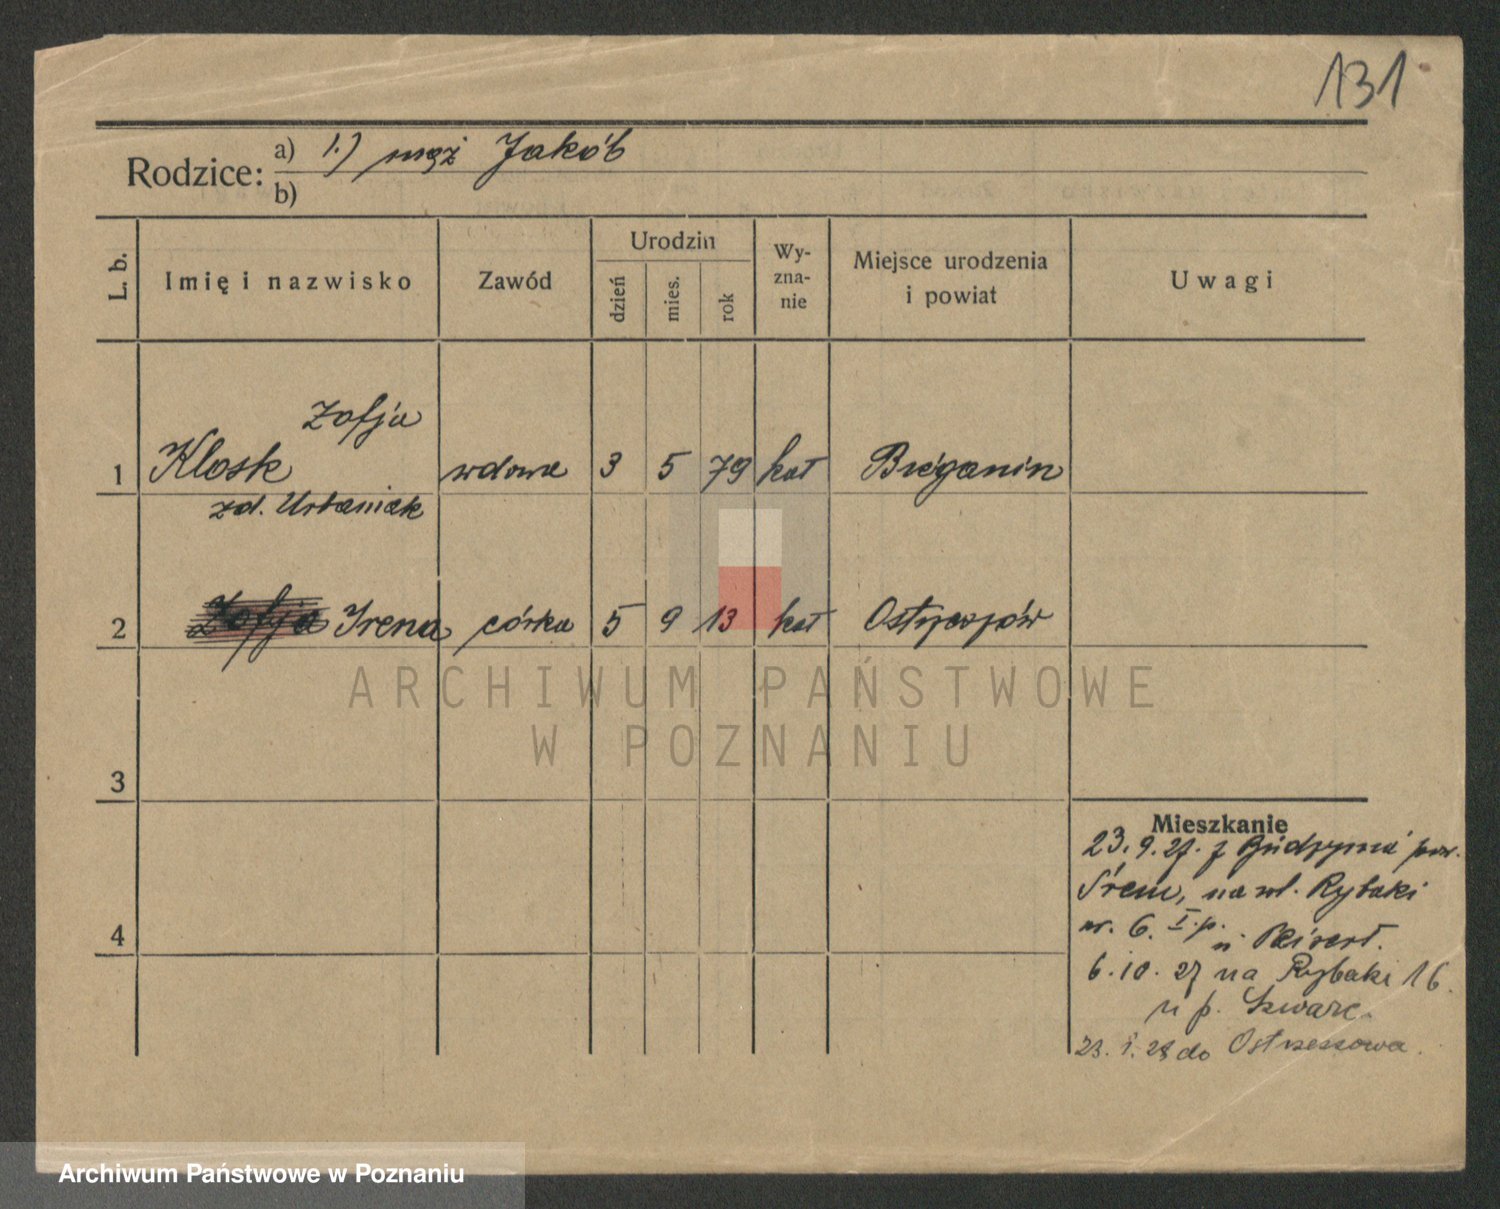 131
Rodzice: a) 1.) mąż Jakób
b)
L. b. Imię i nazwisko Zawód Urodzin dzień mies. rok Wy-zna-nie Miejsce urodzenia i powiat Uwagi
Zofja
1 Klosk wdowa 3 5 79 kat Bieganin
zd. Urbaniak
2 Zofja Irena córka 5 9 13 kat
3
4
Mieszkanie
23. 9. 27. z pow.
Śrem, na ul. Rybaki
nr. 6. I. p. u
6. 10. 27 na Rybaki 16.
u p. Szwarc.
23. 28 do Ostrzeszowa.
ARCHIWUM PAŃSTWOWE
W POZNANIU
Archiwum Państwowe w Poznaniu